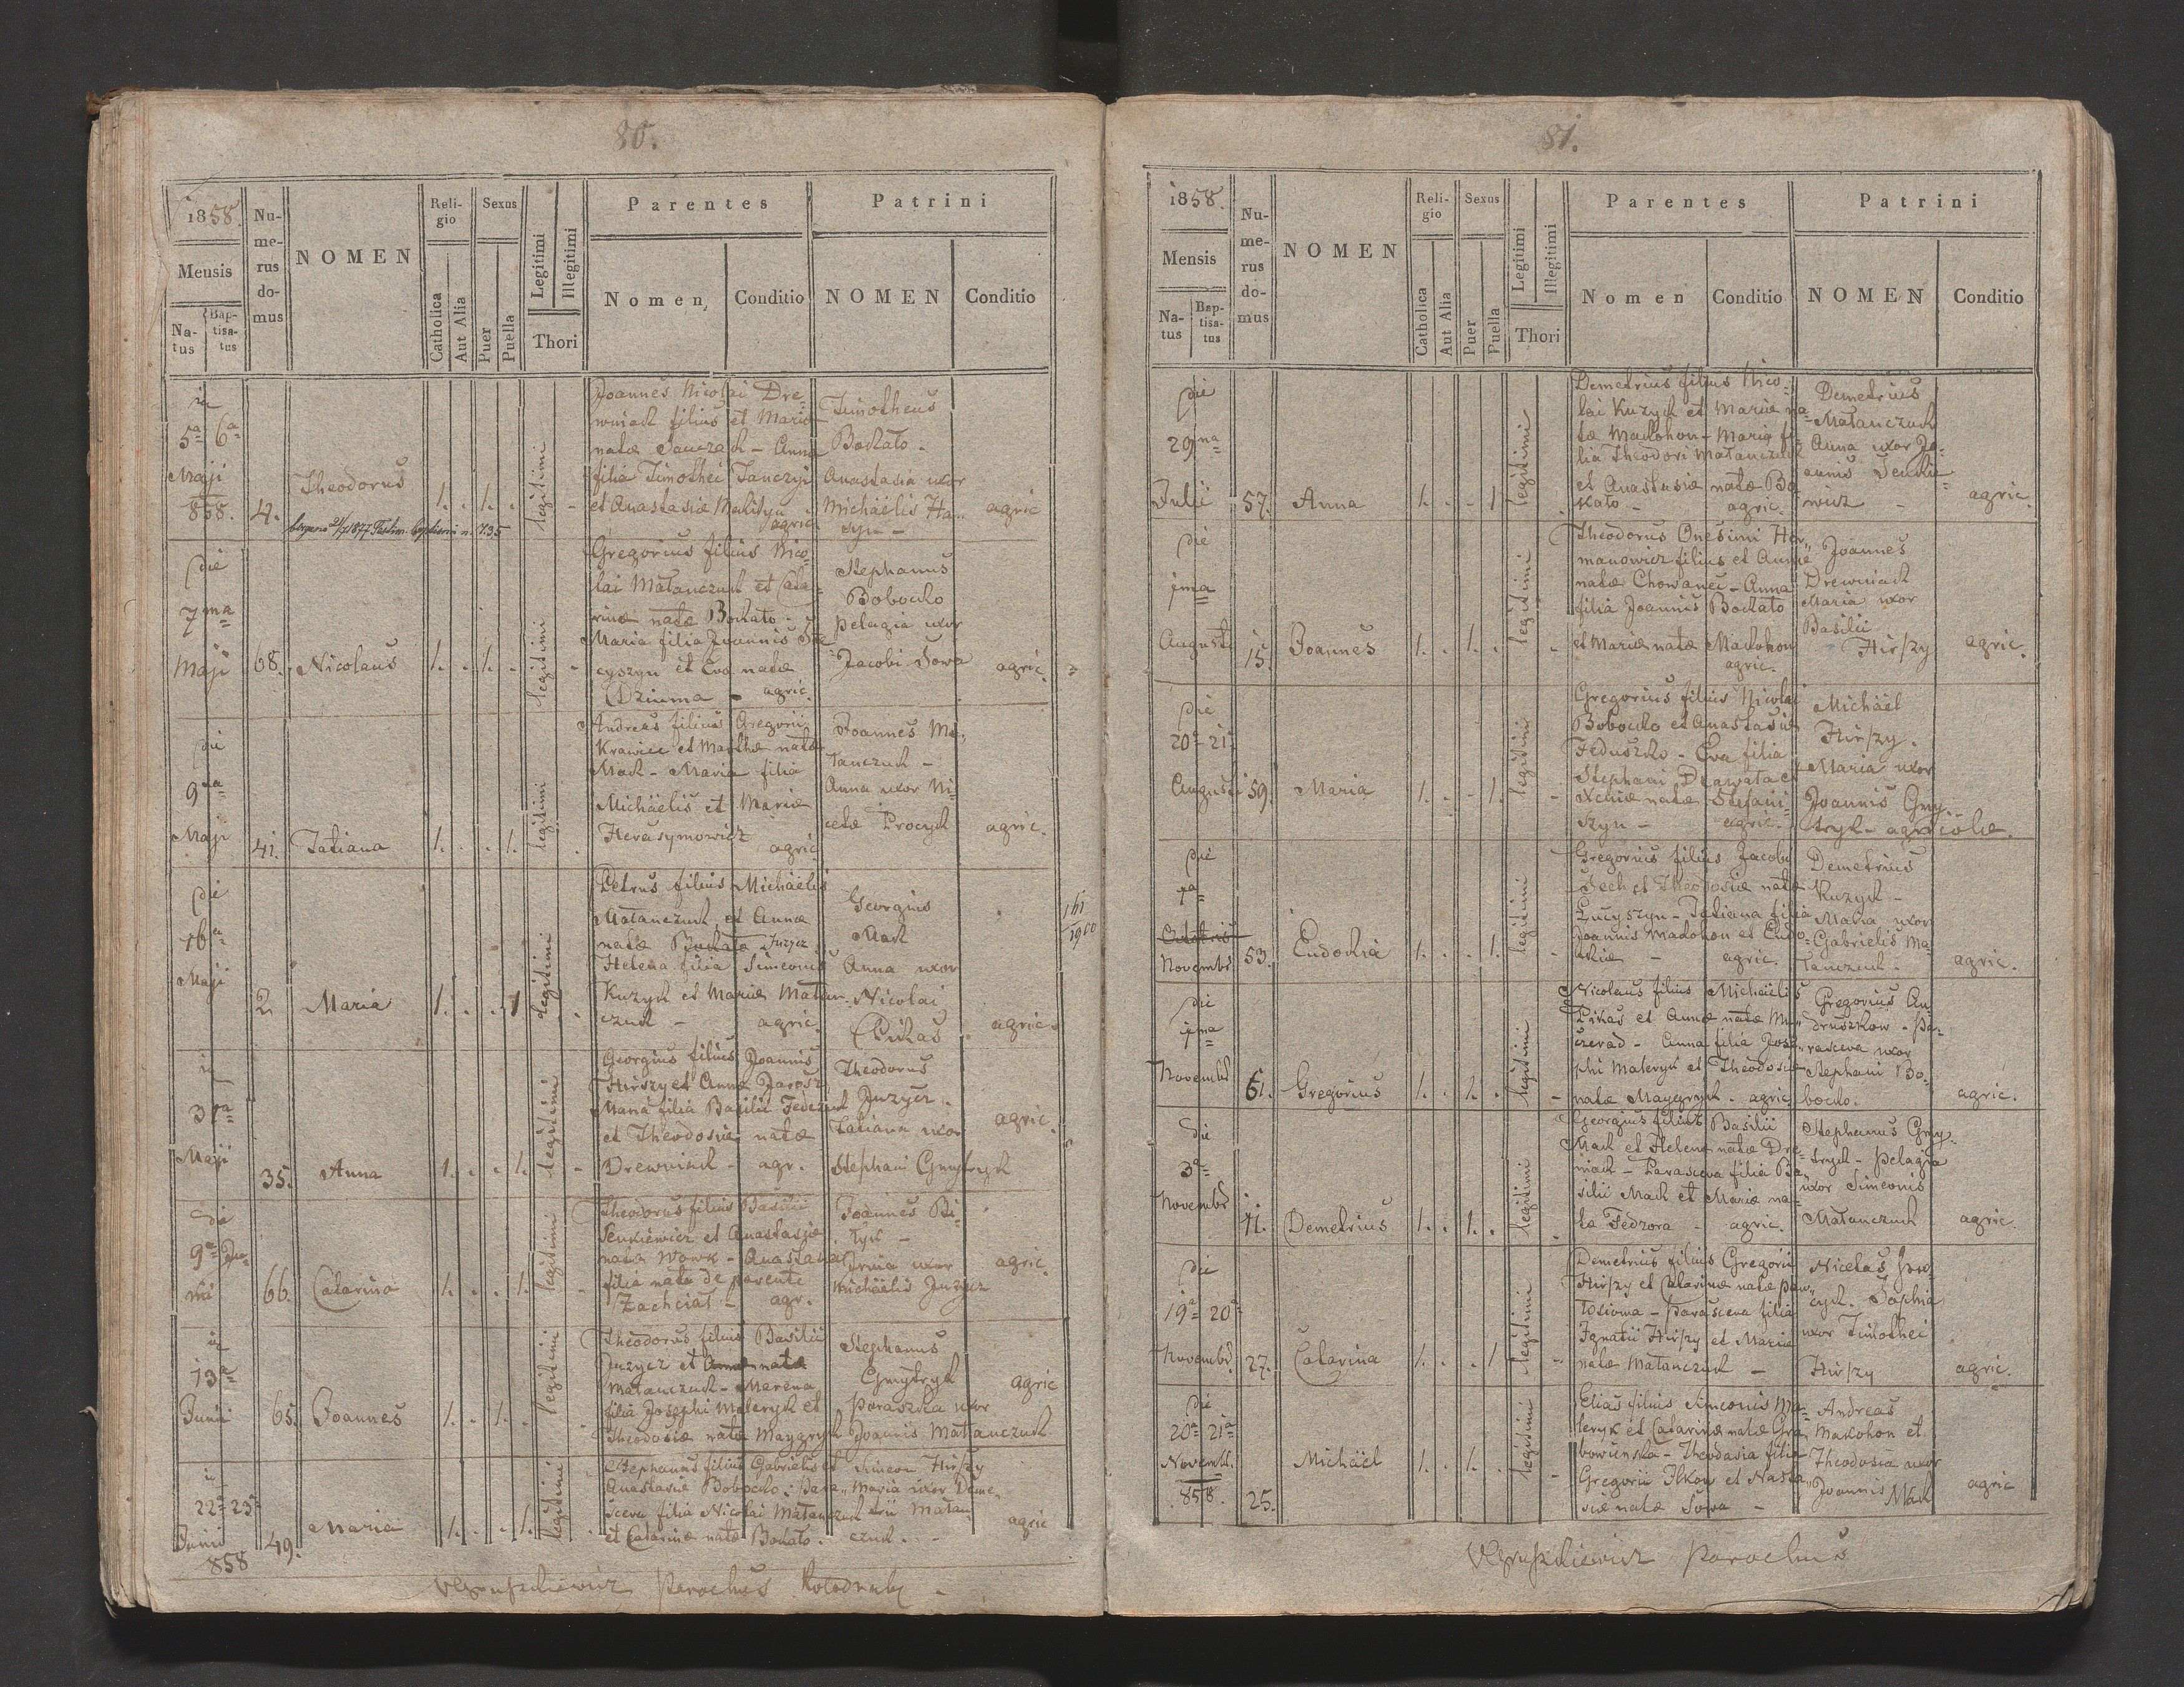 80.
1858.
Mensis
Na-
tus
Bap-
tisa-
tus
Nu-
me-
rus
do-
mus
NOMEN
Reli-
gio
Catholica
Aut Alia
Sexus
Puer
Puella
Legitimi
Illegitimi
Thori
Parentes
Nomen
Conditio
Patrini
NOMEN
Conditio
5a 6a
Maji
858.
4.
Theodorus
1. . 1. .
legitimi
Joannes Nicolai Dre-
wniak filius et Maria
natæ Janczak - Anna
filia Timothei Janczyi
et Anastasiæ
agric.
Timotheus
Bochato -
Anastasia uxor
Michäelis Ha-
syn -
agric
die
7ma
Maji
68.
Nicolaus
1. . 1. .
legitimi
Gregorius filius Nico-
lai Matanczuk et Cata-
rinæ natæ Bochato -
Maria filia Joannis
cyszyn et Eva natæ
Dziuma - agric.
Stephanus
Bobocko
Pelagia uxor
Jacobi Sowa
agric.
die
9na
Maji
41.
Tatiana
1. . . 1.
legitimi
Andreas filius Gregorii
Krawiec et Marthæ natæ
Mach - Maria filia
Michäelis et Mariæ
Herasymowicz
agric
Joannes Ma-
tanczuk -
Anna uxor Ni-
cetæ Procyk
agric.
die
16a
Maji
2.
Maria
1. . . 1
legitimi
Petrus filius Michäelis
Matanczuk et Annæ
natæ Juzycz
Helena filia Simeonis
Kuzyk et Mariæ Matan-
czuk - agric.
Georgius
Mach
Anna uxor
Nicolai
Pikas
agric.
161
1900
31a
Maji
35.
Anna
1. . . 1.
legitimi
Georgius filius Joannis
Hirszy et Anna Jarosz
Maria filia Basilii Fedczuk
et Theodosiæ natæ
Drewniak - agr.
Theodorus
Juzycz -
Tatiana uxor
Stephani Gmytryk
agric.
die
9a Ju-
nii
66.
Catarina
1. . . 1.
legitimi
Theodorus filius Basilii
Senkiewicz et Anastasiæ
natæ Wowk - Anastasia
filia nata de parente
Zachcias - agr.
Joannes Bi-
Irina uxor
Michäelis Juzycz
agric.
13a
Junii
65.
Joannes
1. . 1. .
legitimi
Theodorus filius Basilii
Juzycz et natæ
Matanczuk - Marena
filia Josephi Materyk et
Theodosiæ natæ Maygryk
Stephanus
Gmytryk
Paraszka uxor
Joannis Matanczuk
agric
22a 23a
Junii
858
49.
Maria
1. . . 1.
legitimi
Stephanus filius Gabrielis et
Anastasiæ Bobocko - Para-
sceva filia Nicolai Matanczuk
et Catarinæ natæ Bochato.
Simeon Hirszy
Maria uxor Deme-
trii Matan-
czuk. -
agric
Parochus
81.
1858.
Mensis
Na-
tus
Bap-
tisa-
tus
Nu-
me-
rus
do-
mus
NOMEN
Reli-
gio
Catholica
Aut Alia
Sexus
Puer
Puella
Legitimi
Illegitimi
Thori
Parentes
Nomen
Conditio
Patrini
NOMEN
Conditio
die
29na
Julii
57.
Anna
1. . . 1
legitimi
Demetrius filius Nico-
lai Kuzyk et Mariæ na-
tæ Mackohon - Maria fi-
lia Theodori Matanczuk
et Anastasiæ natæ Bo-
kato - agric.
Demetrius
Matanczuk
Anna uxor Jo-
annis Senkie-
wicz -
agric
die
1ma
Augusti
15.
Joannes
1. . 1. .
legitimi
Theodorus Onesimi Her-
manowicz filius et Annæ
natæ Chowaneć - Anna
filia Joannis Bochato
et Mariæ natæ Mackohon
agric.
Joannes
Drewniak
Maria uxor
Basilii
Hirszy
agric.
die
20a 21a
Augusti
59.
Maria
1. . . 1.
legitimi
Gregorius filius Nicolai
Bobocko et Anastasiæ
Feduszko - Eva filia
Stephani
Xeniæ natæ Stefani-
szyn - agric.
Michäel
Hirszy.
Maria uxor
Joannis Gmy-
tryk - agricolæ.
die
1a
Octobris
Novembr
53.
Eudokia
1. . . 1.
legitimi
Gregorius filius Jacobi
Sech et Theodosiæ natæ
Lucyszyn - Tatiana filia
Joannis Madohon et Eudo-
kiæ - agric.
Demetrius
Kuzyk -
Maria uxor
Gabrielis Ma-
tanczuk.
agric.
die
1ma
Novembr
61.
Gregorius
1. . 1. .
legitimi
Nicolaus filius Michäelis
Pikas et Annæ natæ
- Anna filia Jose-
phi Materyk et Theodosiæ
natæ Maygryk - agric.
Gregorius An-
druszkow - Pa-
rasceva uxor
Stephani Bo-
bocko.
agric.
die
3a
Novembr
11.
Demetrius
1. . 1. .
legitimi
Georgius filius Basilii
Mach et Helena natæ Dre-
wniak - Parasceva filia Ba-
silii Mach et Mariæ na-
ta Fedzora - agric.
Stephanus Gmy-
tryk - Pelagia
uxor Simeonis
Matanczuk
agric.
die
19a 20a
Novembr.
27.
Catarina
1. . . 1
legitimi
Demetrius filius Gregorii
Hirszy et Catarinæ natæ Paw-
- Parasceva filia
Ignatii Hirszy et Mariæ
natæ Matanczuk -
Nicetas
Sophia
uxor Timothei
Hirszy
agric.
die
20a 21a
Novembr.
858.
25.
Michäel
1. . 1. .
legitimi
Elias filius Simeonis Ma-
teryk et Catarinæ natæ Gra-
bowinska - Theodosia filia
Gregorii Ilkow et Nasta-
siæ natæ Sowa -
Andreas
Makohon et
Theodosia uxor
Joannis Mach
agric
Parochus